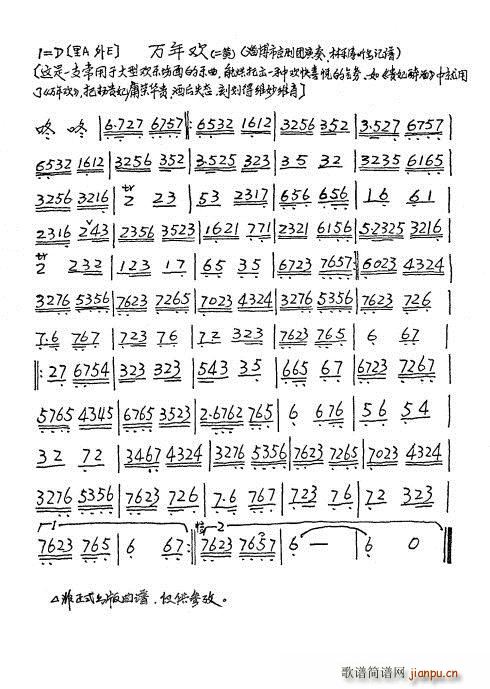 1=D〔里A 外E〕 万年欢(二黄)(淄博市京剧团演奏,
〔这是一支常用于大型欢乐场面的乐曲,能烘托出一种欢快喜悦的气氛。如《贵妃醉酒》中就用
了《万年欢》,把杨贵妃雍荣华贵、酒后失态,刻划得维妙维肖〕
咚 咚 | 6·727 6757 |: 6532 1612 | 3256 352 | 3·527 6757 |
6532 1612 | 3256 352 | 3·525 323 | 35 32 | 3235 6165 |
3256 3216 | 2 23 | 53 2317 | 656 656 | 16 61 |
2316 243 | 2356 3523 | 1621 771 | 2321 6156 | 5·2325 3216 |
2 232 | 123 17 | 65 35 | 6723 7657 :| 6023 4324 |
3276 5356 | 7623 7265 | 7023 4324 | 3276 5356 | 7623 726 |
7·6 767 | 723 76 | 72 323 | 7623 765 | 6 67 |
|: 27 6754 | 323 323 | 543 35 | 665 67 | 6723 7267 |
5765 4345 | 6765 3523 | 2·6762 765 | 6 676 | 56 54 |
32 72 | 3467 4324 | 3276 5356 | 7623 7265 | 7023 4324 |
3276 5356 | 7623 726 | 7·6 767 | 723 76 | 72 323 |
1 2
7623 765 | 6 67 :| 7623 7657 | 6 — | 6 0 ‖
△非正式出版曲谱,仅供参改。
歌谱简谱网
jianpu.cn